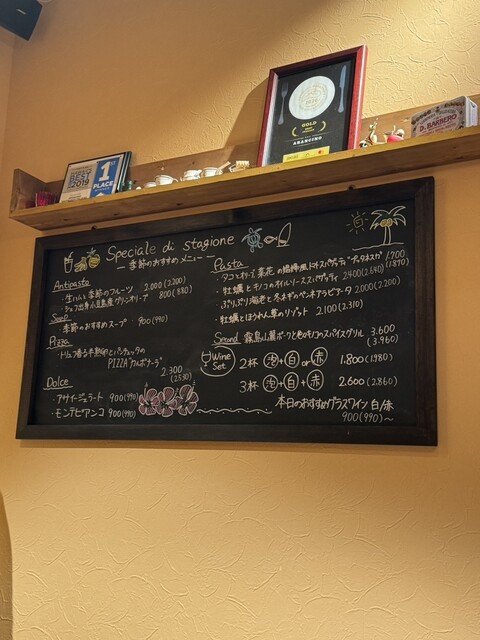 BEST 2019
1ST PLACE
GOLD
ARANCINO
D. BARBERO
Speciale di stagione
ー季節のおすすめメニューー
Antipasto
・生ハムと季節のフルーツ 2.000(2200)
・シェフ出身小豆島産グリーンオリーブ 800(880)
Soup
・季節のおすすめスープ 900(990)
Pizza
・トリュフ香る半熟卵とパンチェッタの
PIZZA"カルボナーラ"
2.300
(2530)
Dolce
・アサイージェラート 900(990)
・モンテビアンコ 900(990)
Pasta
・タコとオリーブ、菜花の
1.700
(1.870)
・牡蠣とキノコのオイルソーススパゲッティ 2400(2.640)
・ぷりぷり海老と冬ネギのペンネアラビアータ 2.000(2.200)
・牡蠣とほうれん草のリゾット 2.100(2.310)
Second 霧島山麓ポークと色々キノコのスパイスグリル 3.600
(3.960)
Wine Set
2杯 泡+白 or 赤 1.800(1.980)
3杯 泡+白+赤 2.600(2.860)
本日のおすすめグラスワイン 白/赤
900(990)〜